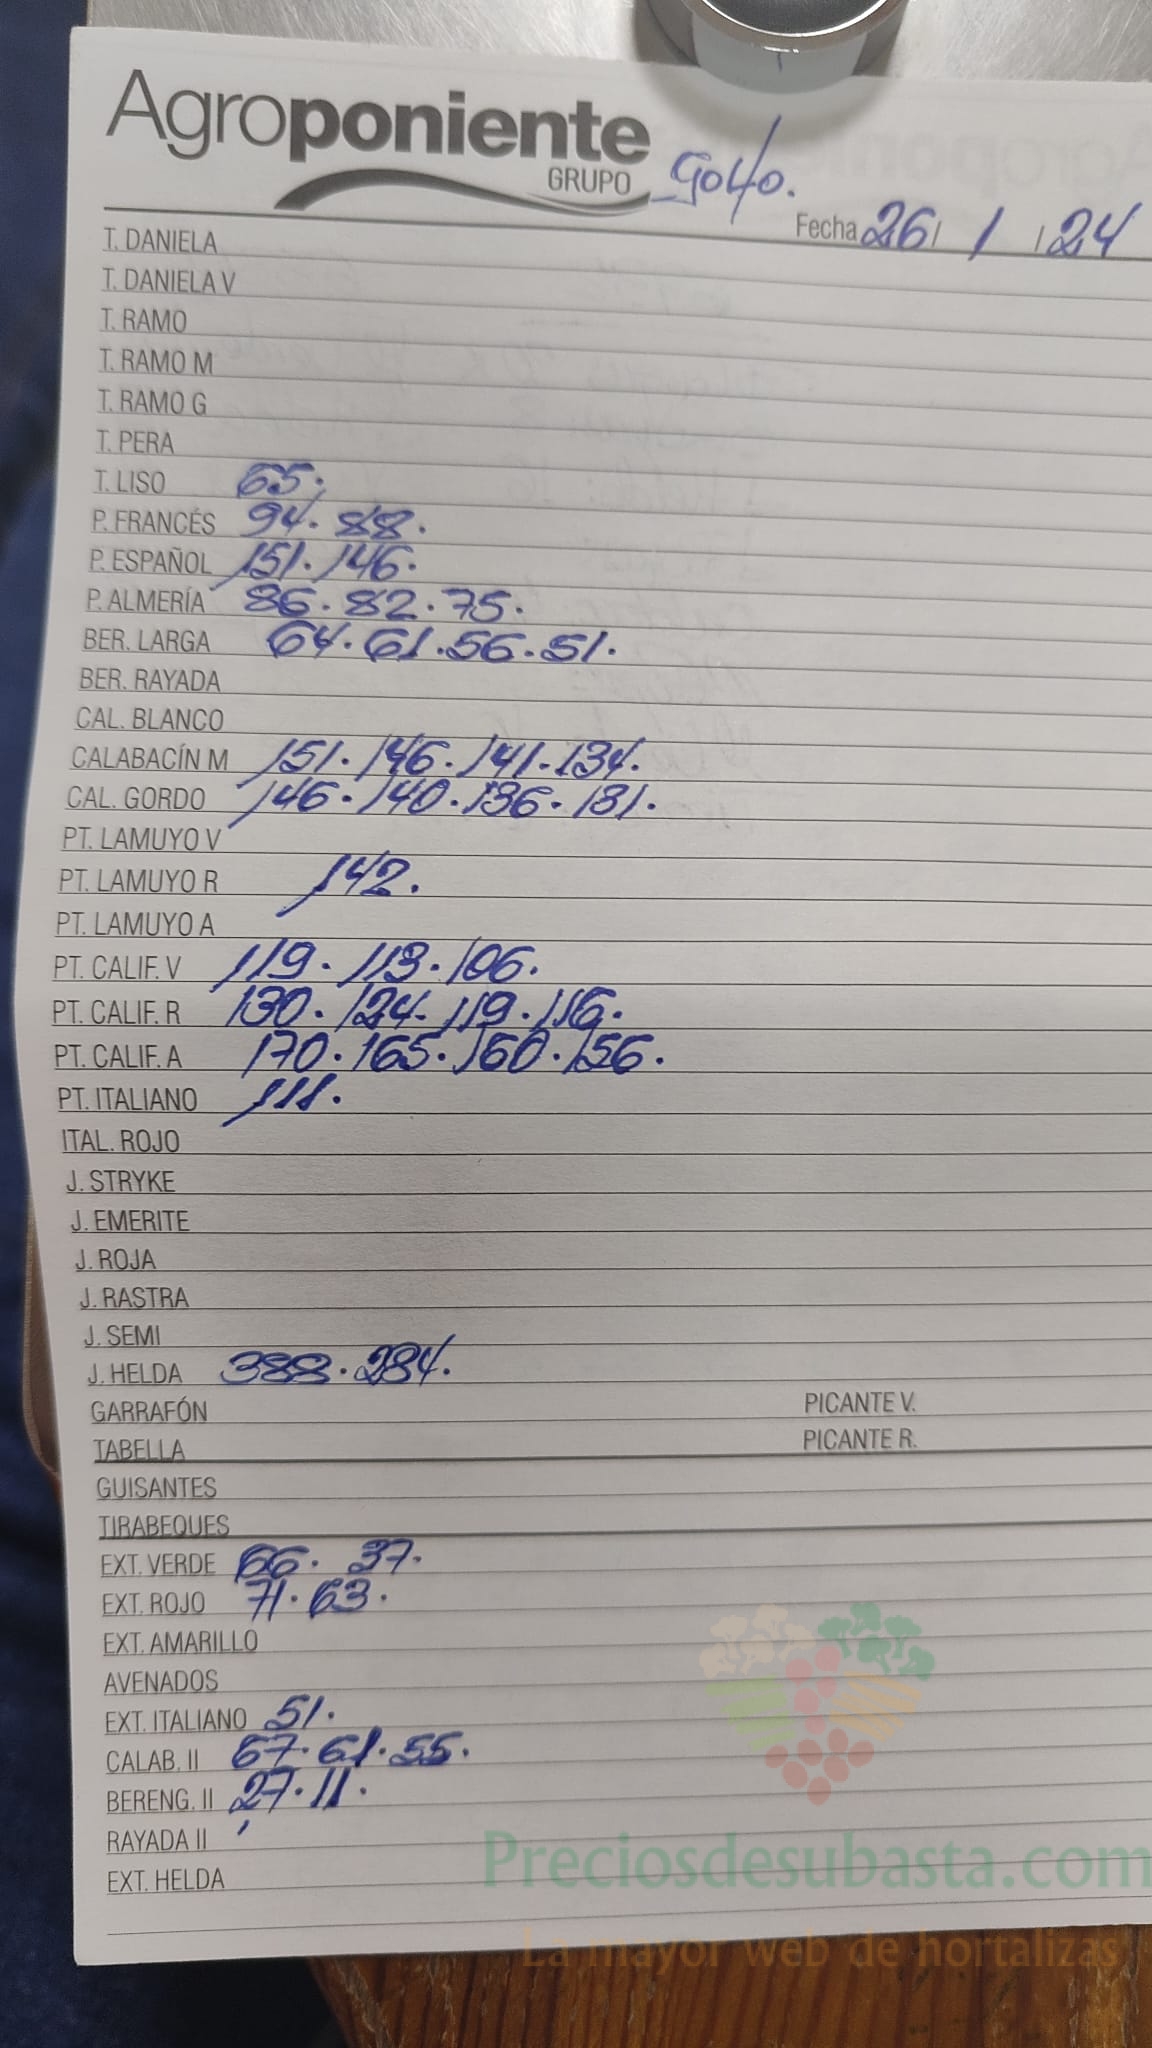 Agroponiente
GRUPO
Golfo.
Fecha 26/ 1 /24
T. DANIELA
T. DANIELA V
T. RAMO
T. RAMO M
T. RAMO G
T. PERA
T. LISO 65.
P. FRANCÉS 94. 88.
P. ESPAÑOL 151. 146.
P. ALMERÍA 86. 82. 75.
BER. LARGA 64. 61. 56. 51.
BER. RAYADA
CAL. BLANCO
CALABACÍN M 151. 146. 141. 134.
CAL. GORDO 146. 140. 136. 131.
PT. LAMUYO V
PT. LAMUYO R 142.
PT. LAMUYO A
PT. CALIF. V 119. 113. 106.
PT. CALIF. R 130. 124. 119. 116.
PT. CALIF. A 170. 165. 160. 156.
PT. ITALIANO 111.
ITAL. ROJO
J. STRYKE
J. EMERITE
J. ROJA
J. RASTRA
J. SEMI
J. HELDA 388. 284.
GARRAFÓN PICANTE V.
TABELLA PICANTE R.
GUISANTES
TIRABEQUES
EXT. VERDE 66. 37.
EXT. ROJO 71. 63.
EXT. AMARILLO
AVENADOS
EXT. ITALIANO 51.
CALAB. II 67. 61. 55.
BERENG. II 27. 11.
RAYADA II
EXT. HELDA
Preciosdesubasta.com
La mayor web de hortalizas